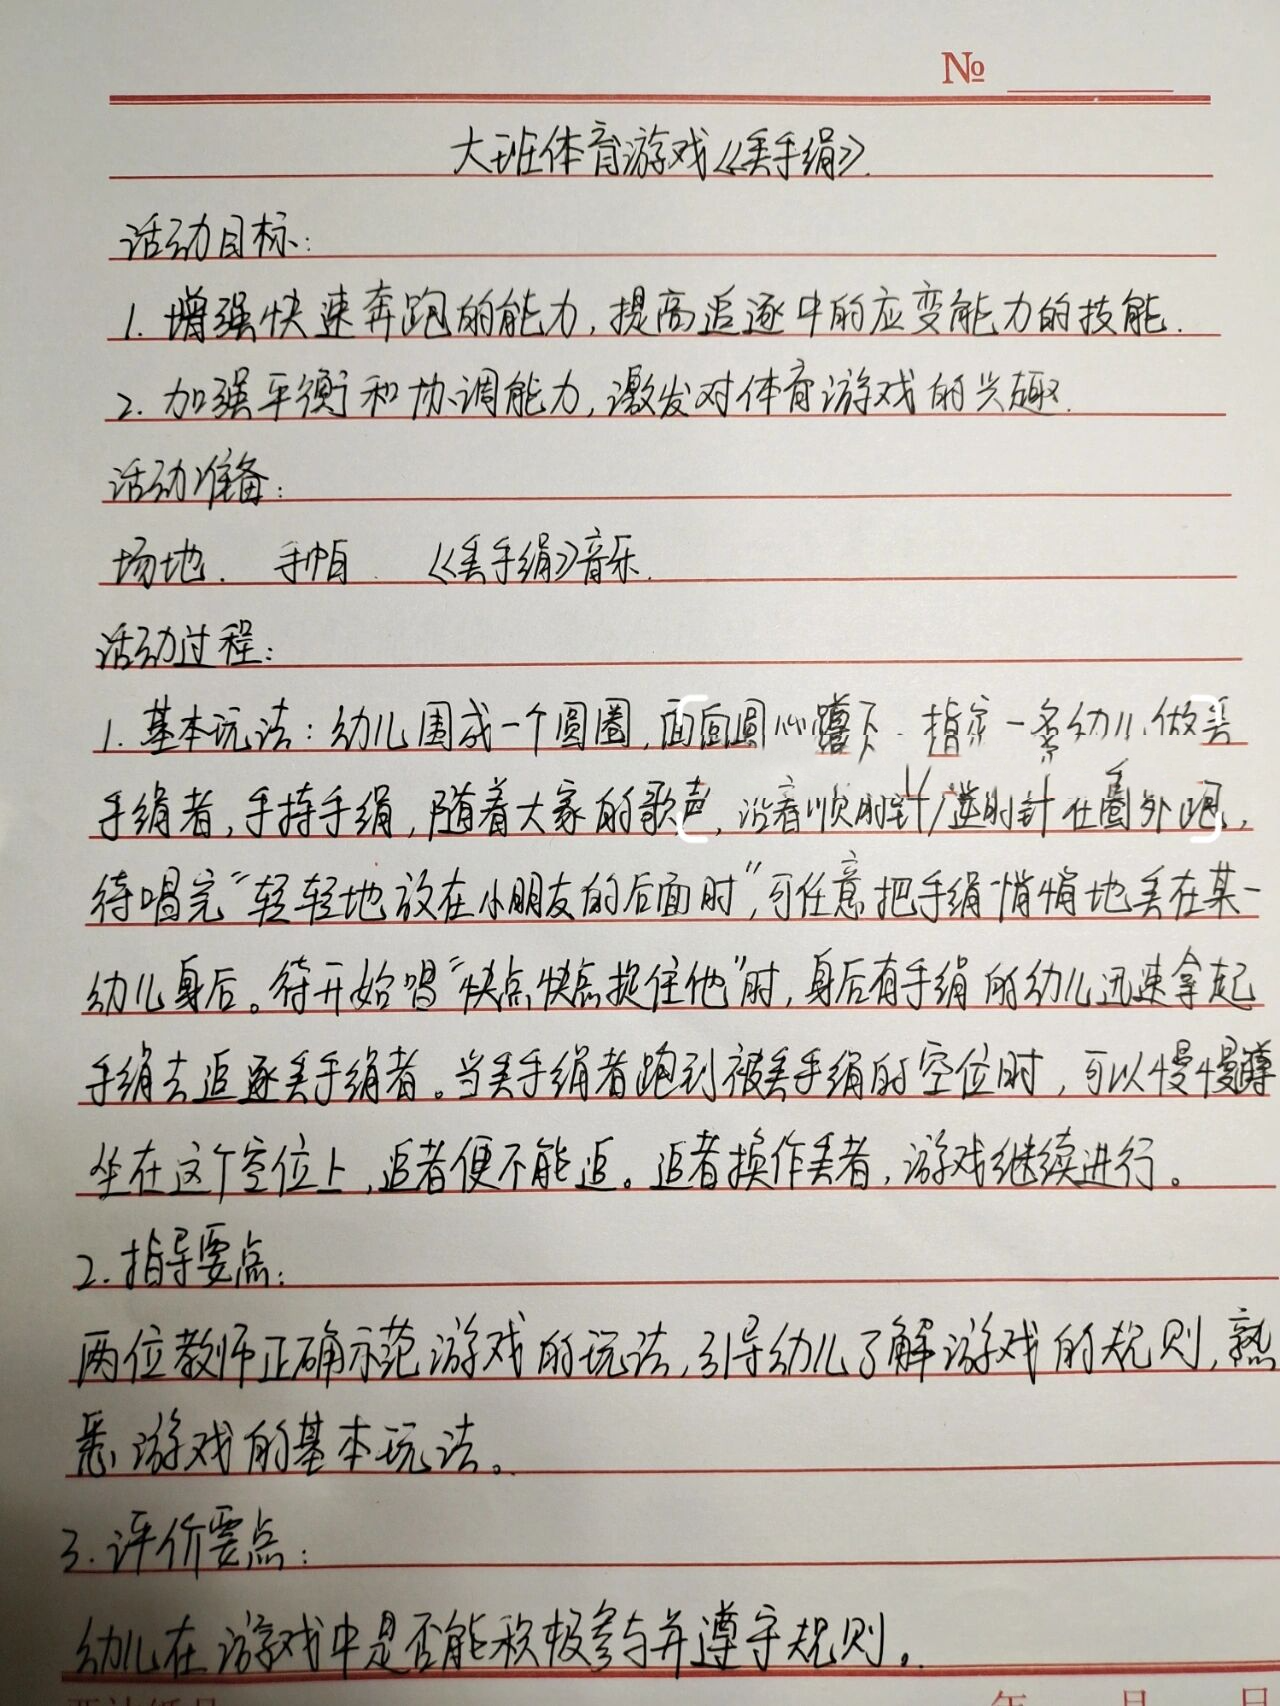 №
大班体育游戏《丢手绢》.
活动目标:
1. 增强快速奔跑的能力, 提高追逐中的应变能力的技能.
2. 加强平衡和协调能力, 激发对体育游戏的兴趣.
活动准备:
场地. 手帕. 《丢手绢》音乐.
活动过程:
1. 基本玩法: 幼儿围成一个圆圈, 面向圆心蹲下. 指定一名幼儿做丢
手绢者, 手持手绢, 随着大家的歌声, 沿着顺时针/逆时针在圈外跑,
待唱完“轻轻地放在小朋友的后面时”, 可任意把手绢悄悄地丢在某一
幼儿身后。待开始唱“快点快点捉住他”时, 身后有手绢的幼儿迅速拿起
手绢去追逐丢手绢者。当丢手绢者跑到被丢手绢的空位时, 可以慢慢蹲
坐在这个空位上, 追者便不能追。追者换作丢者, 游戏继续进行。
2. 指导要点:
两位教师正确示范游戏的玩法, 引导幼儿了解游戏的规则, 熟
悉游戏的基本玩法。
3. 评价要点:
幼儿在游戏中是否能积极参与并遵守规则。
年 月 日